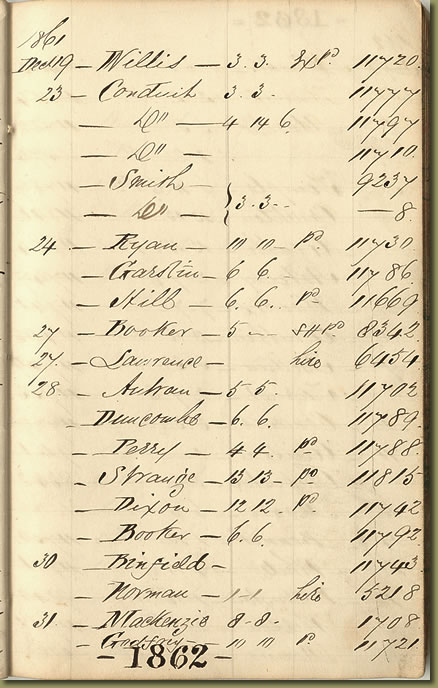 1861
Decr 19 — Willis — 3. 3. pd 11720
23 — Conduit 3. 3 — 11777
— Do — 4 14 6. 11797
— Do — 11710.
— Smith — 9237
— Do — } 3. 3 - - — 8.
24. — Ryan — 10 10 — pd 11730
— Garstin — 6. 6. — 11786
— Hill — 6. 6. — pd 11669
27 — Booker — 5 — — pd 8342
27. — Lawrence — hire 6454
28 — Autran — 5 5. 11702
— Duncombe — 6. 6. 11789
— Perry — 4 4. pd 11788
— Strange — 13 13 — pd 11815
— Dixon — 12 12. — pd 11742
— Booker — 6. 6. 11792
30 — Binfield — 11743
— Norman — 1-1 hire 5218
31. — Mackenzie 8-8- 1708
— Godfrey — 10 10 pd 11721
- 1862 -